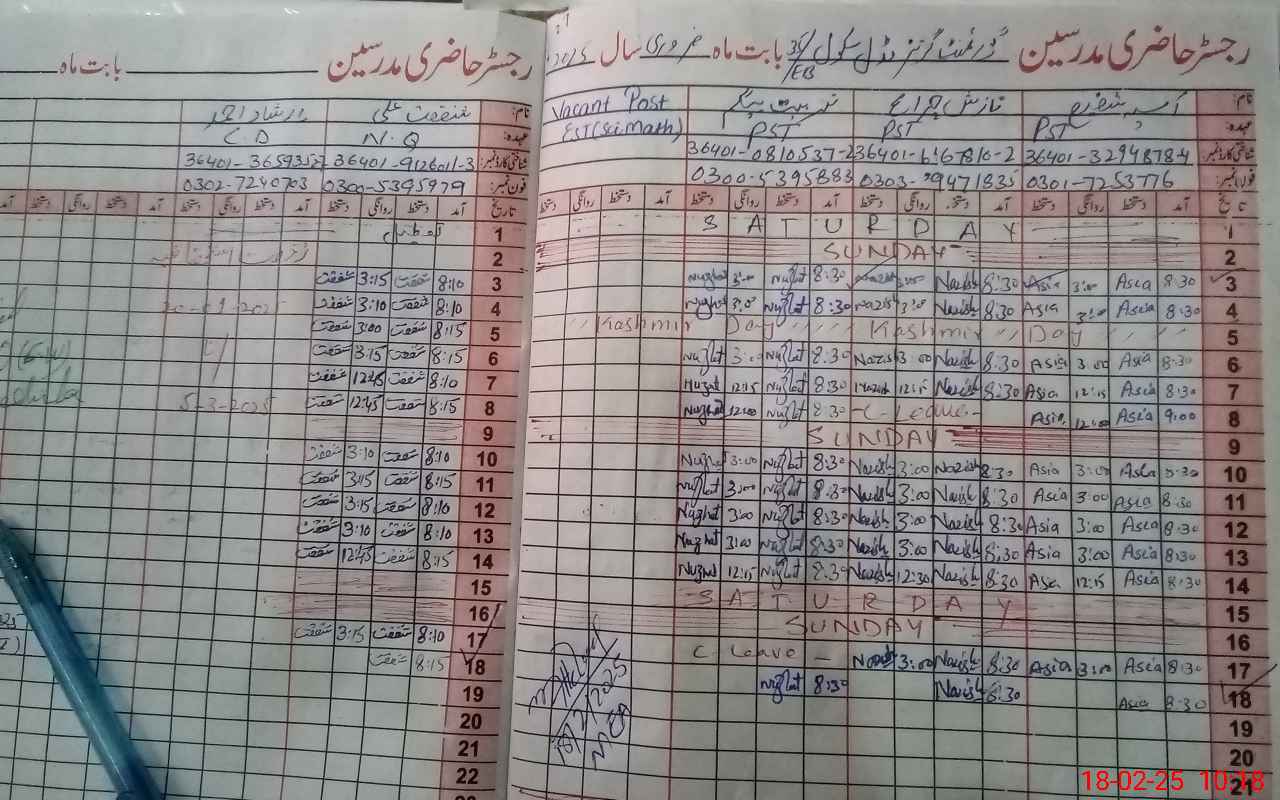 رجسٹر حاضری مدرسین گورنمنٹ گرلز مڈل سکول 36/EB بابت ماہ فروری سال 2025
نام: آسیہ شفیع نازش چراغ نزہت بیگم Vacant Post
عہدہ: PST PST PST EST(Sci.Math)
شناختی کارڈ نمبر:
فون نمبر: 0301-7253776 0300-5395883
تاریخ آمد دستخط روانگی دستخط آمد دستخط روانگی دستخط آمد دستخط روانگی دستخط آمد دستخط روانگی دستخط
1 S A T U R D A Y
2 SUNDAY
3 8:30 Asia 3:00 Asia 8:30 Nazish 8:30 Nuzhat 3:00 Nuzhat
4 8:30 Asia 3:00 Asia 8:30 Nazish 3:00 Nazish 8:30 Nuzhat 3:00 Nuzhat
5 Kashmir Day Kashmir Day
6 8:30 Asia 3:00 Asia 8:30 Nazish 3:00 Nazish 8:30 Nuzhat 3:00 Nuzhat
7 8:30 Asia 12:15 Asia 8:30 Nazish 12:15 Nazish 8:30 Nuzhat 12:15 Nuzhat
8 9:00 Asia 12:00 Asia C-Leave 8:30 Nuzhat 12:00 Nuzhat
9 SUNDAY
10 8:30 Asia 3:00 Asia 8:30 Nazish 3:00 Nazish 8:30 Nuzhat 3:00 Nuzhat
11 8:30 Asia 3:00 Asia 8:30 Nazish 3:00 Nazish 8:30 Nuzhat 3:00 Nuzhat
12 8:30 Asia 3:00 Asia 8:30 Nazish 3:00 Nazish 8:30 Nuzhat 3:00 Nuzhat
13 8:30 Asia 3:00 Asia 8:30 Nazish 3:00 Nazish 8:30 Nuzhat 3:00 Nuzhat
14 8:30 Asia 12:15 Asia 8:30 Nazish 12:30 Nazish 8:30 Nuzhat 12:15 Nuzhat
15 S A T U R D A Y
16 SUNDAY
17 8:30 Asia 3:00 Asia 8:30 Nazish 3:00 Nazish C. Leave
18 8:30 Asia 8:30 Nazish 8:30 Nuzhat
19
20
21
18/2/2025
رجسٹر حاضری مدرسین بابت ماہ
نام: شفقت علی ارشاد احمد
عہدہ: N.Q C.D
شناختی کارڈ نمبر: 36401-9126011-3
فون نمبر: 0300-5395979 0302-7240703
تاریخ آمد دستخط روانگی دستخط آمد دستخط روانگی دستخط
1
2
3 8:10 شفقت 3:15 شفقت
4 8:10 شفقت 3:10 شفقت
5 8:15 شفقت 3:00 شفقت
6 8:15 شفقت 3:15 شفقت
7 8:10 شفقت 12:45 شفقت
8 8:15 شفقت 12:45 شفقت 5-3-2025
9
10 8:10 شفقت 3:10 شفقت
11 8:15 شفقت 3:15 شفقت
12 8:10 شفقت 3:15 شفقت
13 8:10 شفقت 3:10 شفقت
14 8:15 شفقت 12:45 شفقت
15
16
17 8:10 شفقت 3:15 شفقت
18 8:15 شفقت
19
20
21
22
18-02-25 10:18